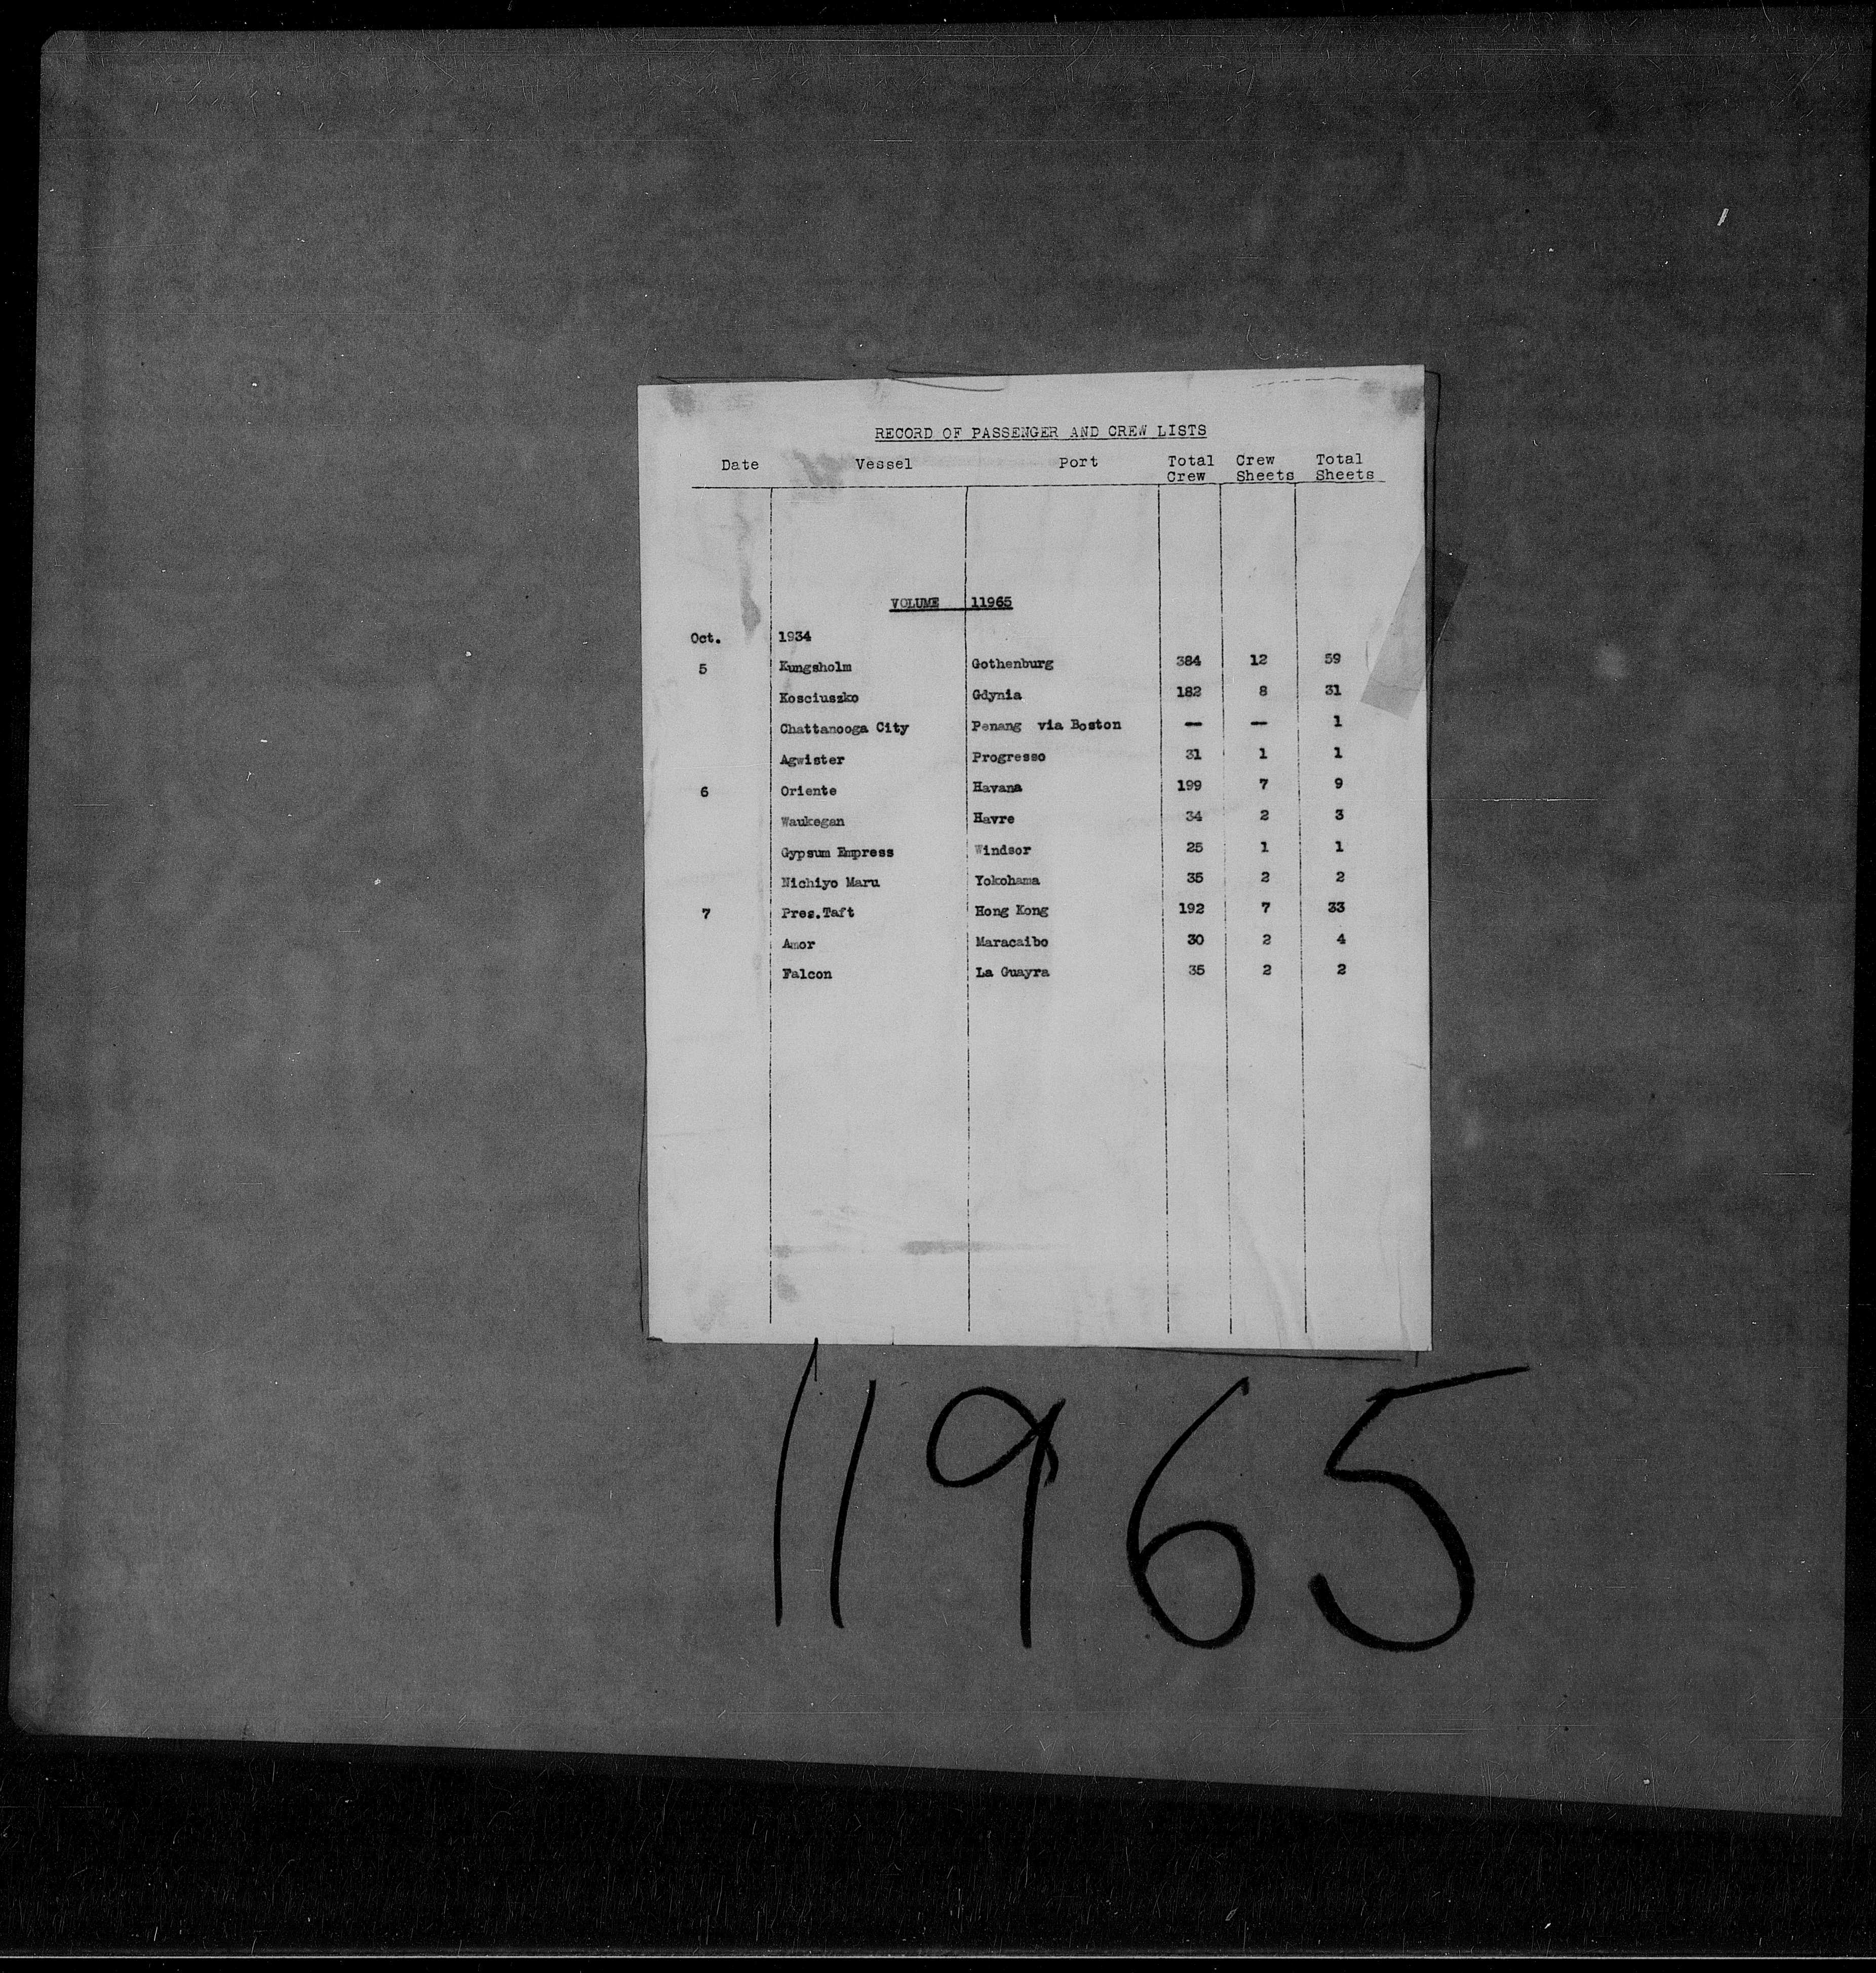 RECORD OF PASSENGER AND CREW LISTS
Date Vessel Port Total Crew Crew Sheets Total Sheets
VOLUME 11965
Oct. 1934
5 Kungsholm Gothenburg 384 12 59
Kosciuszko Gdynia 182 8 31
Chattanooga City Penang via Boston — — 1
Agwister Progresso 31 1 1
6 Oriente Havana 199 7 9
Waukegan Havre 34 2 3
Gypsum Empress Windsor 25 1 1
Nichiyo Maru Yokohama 35 2 2
7 Pres.Taft Hong Kong 192 7 33
Amor Maracaibo 30 2 4
Falcon La Guayra 35 2 2
11965